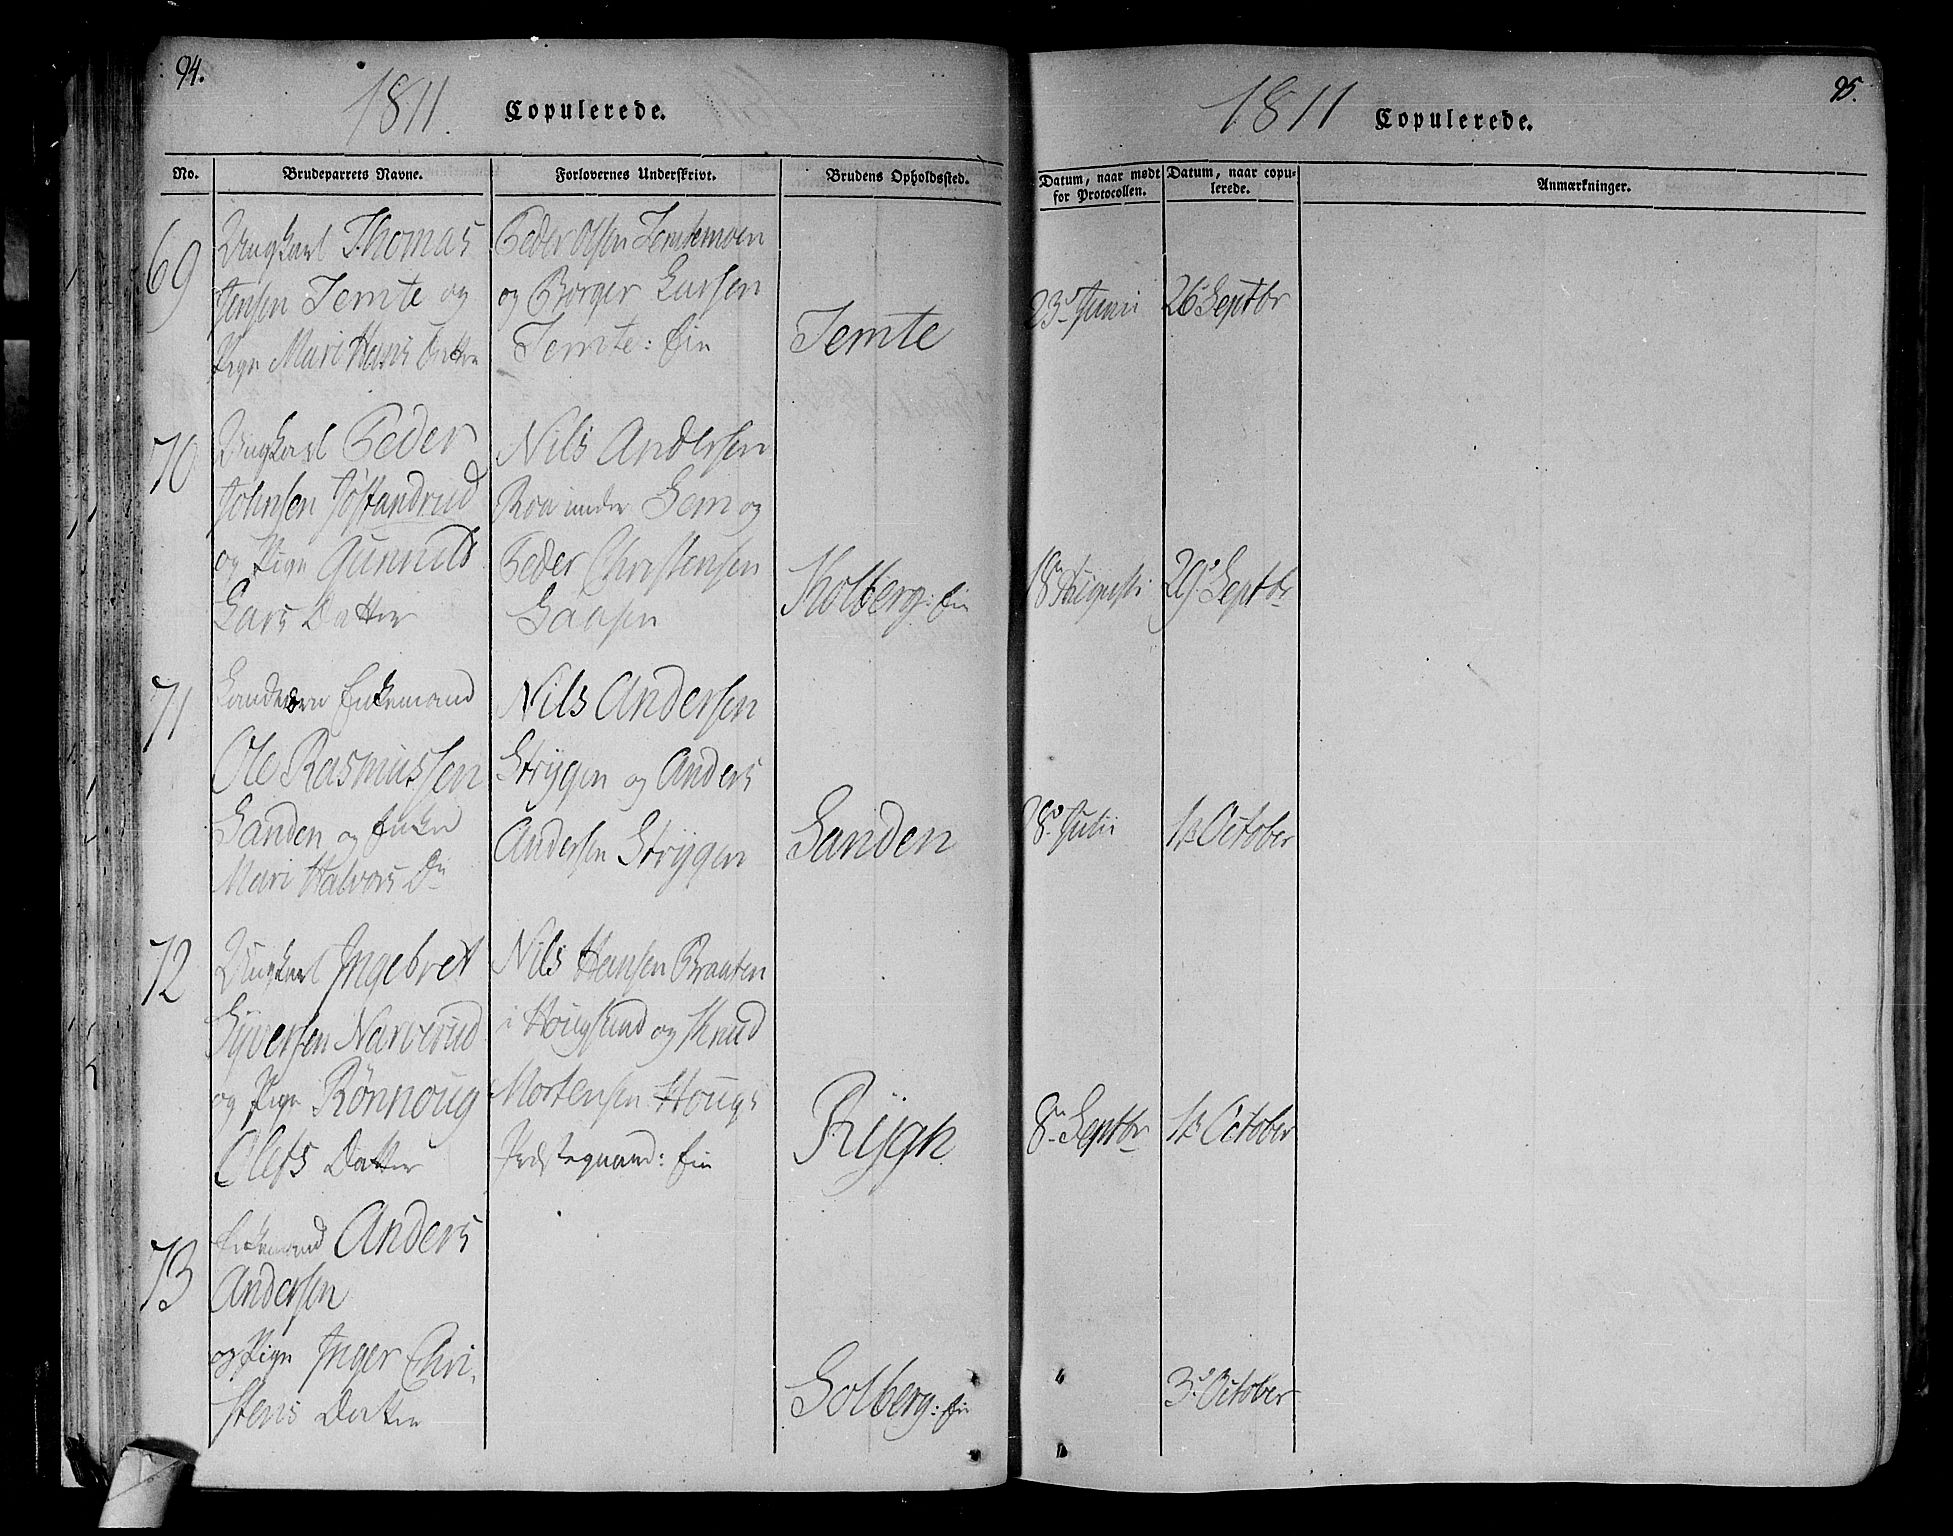 94.
1811.
Copulerede.
No.
Brudeparrets Navne.
Forlovernes Underskrivt.
Brudens Opholdssted.
69
Ungkarl Thomas
Jensen Temte og
Pige Mari Hans Datter
Peder Olsen Temtemoen
og Borger Larsen
Temte: Eier
Temte
70
Ungkarl Peder
Johnsen
og Pige Gunnild
Lars Datter
Nils Andersen
under Sem og
Peder Christensen
Gaasen
Kolberg: Eier
71
Enkemand
Ole Rasmussen
Sanden og Enke
Mari Halvors Dr
Nils Andersen
Strygen og Anders
Andersen Strygen
Sanden
72
Ungkarl Ingebret
Syversen Narverud
og Pige Rönnoug
Olefs Datter
Nils Hansen Braaten
i Hougsund og Knud
Mortensen Hougs
Præstegaard: Eier
Rygh
73
Enkemand Anders
Andersen
og Pige Inger Chri-
stens Datter
Solberg: Eier
1811
Copulerede.
95.
Datum, naar mødt
for Protocollen.
Datum, naar copu-
lerede.
Anmærkninger.
23. Junii
26 Septbr
18 Augusti
29. Septbr
28. Julii
1. October
8. Septbr
1. October
3. October